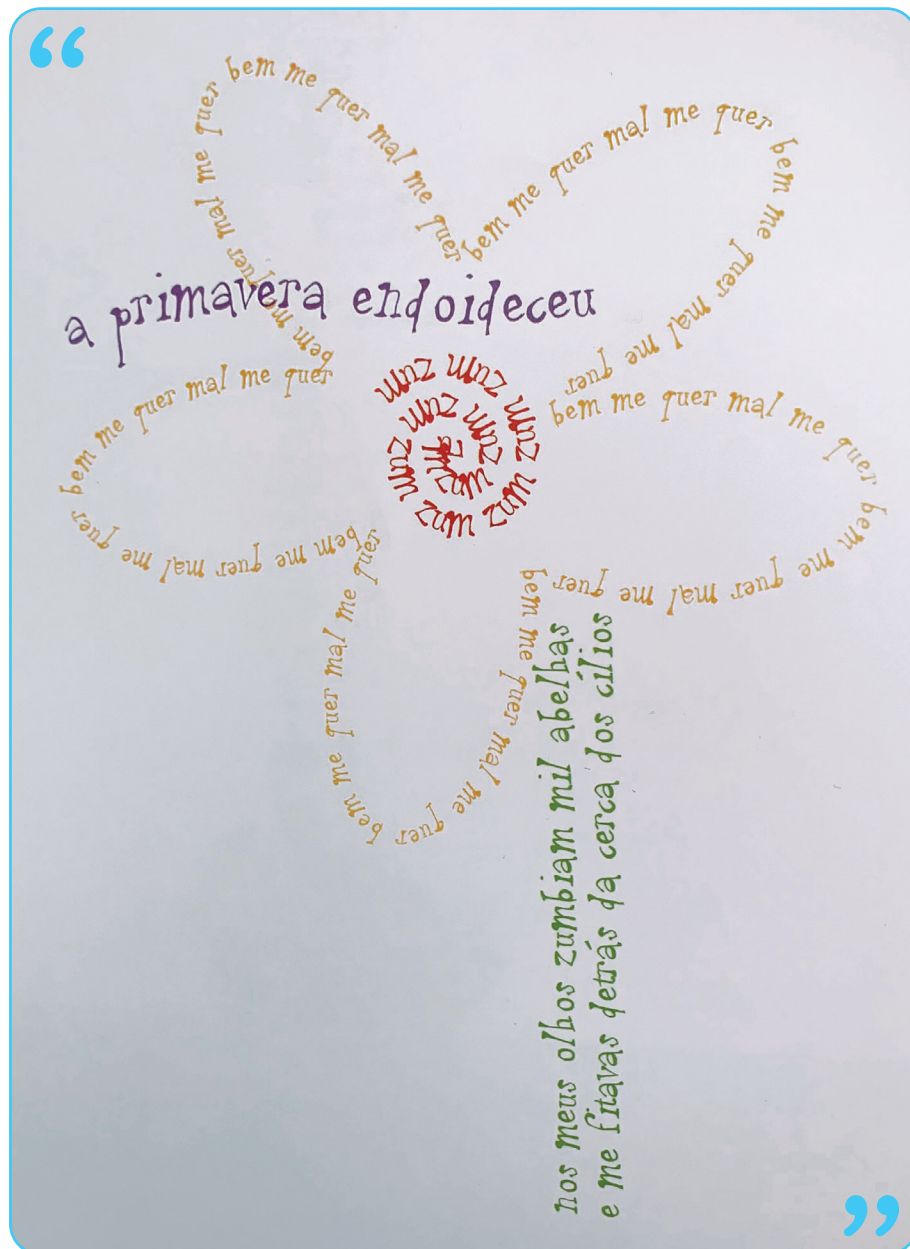 a primavera endoideceu
bem me quer mal me quer bem me quer mal me quer
bem me quer mal me quer bem me quer mal me quer
bem me quer mal me quer bem me quer mal me quer
bem me quer mal me quer bem me quer mal me quer
bem me quer mal me quer bem me quer mal me quer
zum zum zum zum zum zum zum zum zum
nos meus olhos zumbiam mil abelhas
e me fitavas detrás da cerca dos cílios